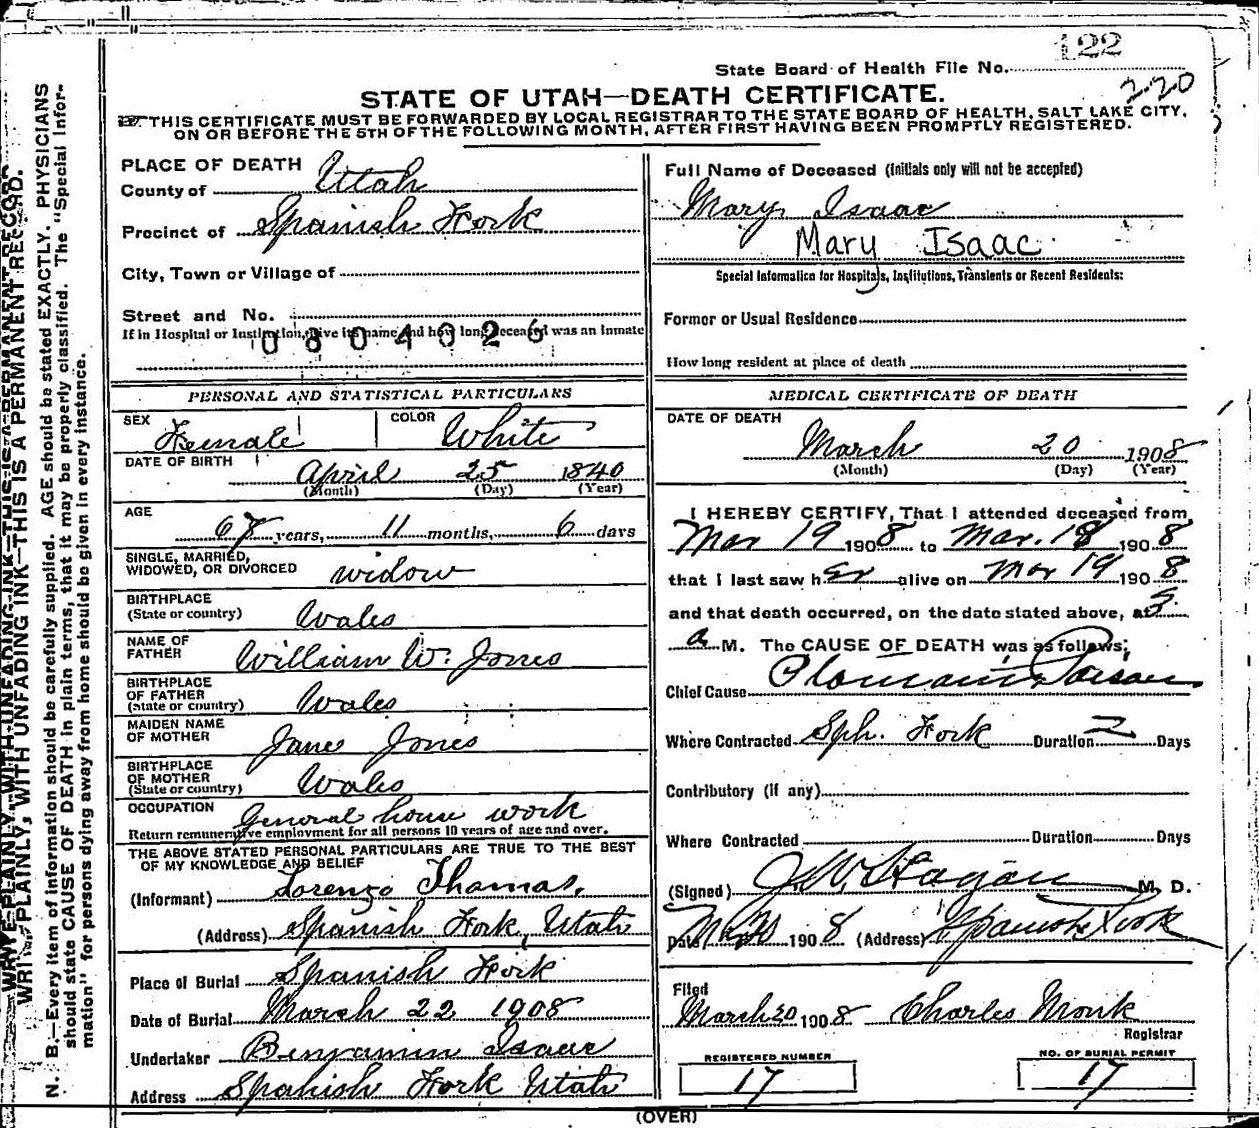 122
State Board of Health File No.
220
STATE OF UTAH—DEATH CERTIFICATE.
THIS CERTIFICATE MUST BE FORWARDED BY LOCAL REGISTRAR TO THE STATE BOARD OF HEALTH, SALT LAKE CITY,
ON OR BEFORE THE 5TH OF THE FOLLOWING MONTH, AFTER FIRST HAVING BEEN PROMPTLY REGISTERED.
WRITE PLAINLY, WITH UNFADING INK—THIS IS A PERMANENT RECORD.
N. B.—Every item of information should be carefully supplied. AGE should be stated EXACTLY. PHYSICIANS
should state CAUSE OF DEATH in plain terms, that it may be properly classified. The "Special Infor-
mation" for persons dying away from home should be given in every instance.
PLACE OF DEATH
County of Utah
Precinct of Spanish Fork
City, Town or Village of
Street and No.
If in Hospital or Institution, give its name and how long deceased was an inmate
0804026
PERSONAL AND STATISTICAL PARTICULARS
SEX Female COLOR White
DATE OF BIRTH April 25 1840
(Month) (Day) (Year)
AGE 67 years, 11 months, 6 days
SINGLE, MARRIED,
WIDOWED, OR DIVORCED widow
BIRTHPLACE
(State or country) Wales
NAME OF
FATHER William W. Jones
BIRTHPLACE
OF FATHER
(State or country) Wales
MAIDEN NAME
OF MOTHER Jane Jones
BIRTHPLACE
OF MOTHER
(State or country) Wales
OCCUPATION General house work
Return remunerative employment for all persons 10 years of age and over.
THE ABOVE STATED PERSONAL PARTICULARS ARE TRUE TO THE BEST
OF MY KNOWLEDGE AND BELIEF
(Informant) Lorenzo Thomas,
(Address) Spanish Fork, Utah
Place of Burial Spanish Fork
Date of Burial March 22 1908
Undertaker Benjamin Isaac
Address Spanish Fork Utah
Full Name of Deceased (Initials only will not be accepted)
Mary Isaac
Mary Isaac
Special Information for Hospitals, Institutions, Transients or Recent Residents:
Former or Usual Residence
How long resident at place of death
MEDICAL CERTIFICATE OF DEATH
DATE OF DEATH
March 20 1908
(Month) (Day) (Year)
I HEREBY CERTIFY, That I attended deceased from
Mar 19 1908 to Mar. 1908
that I last saw her alive on Mar 19 1908
and that death occurred, on the date stated above, at 5
a M. The CAUSE OF DEATH was as follows:
Chief Cause Ptomain Poison
Where Contracted Sph. Fork Duration 2 Days
Contributory (if any)
Where Contracted Duration Days
(Signed) J.W. Hagan M. D.
Date 1908 (Address) Spanish Fork
Filed
March 20 1908 Charles Monk
Registrar
REGISTERED NUMBER
17
NO. OF BURIAL PERMIT
17
(OVER)